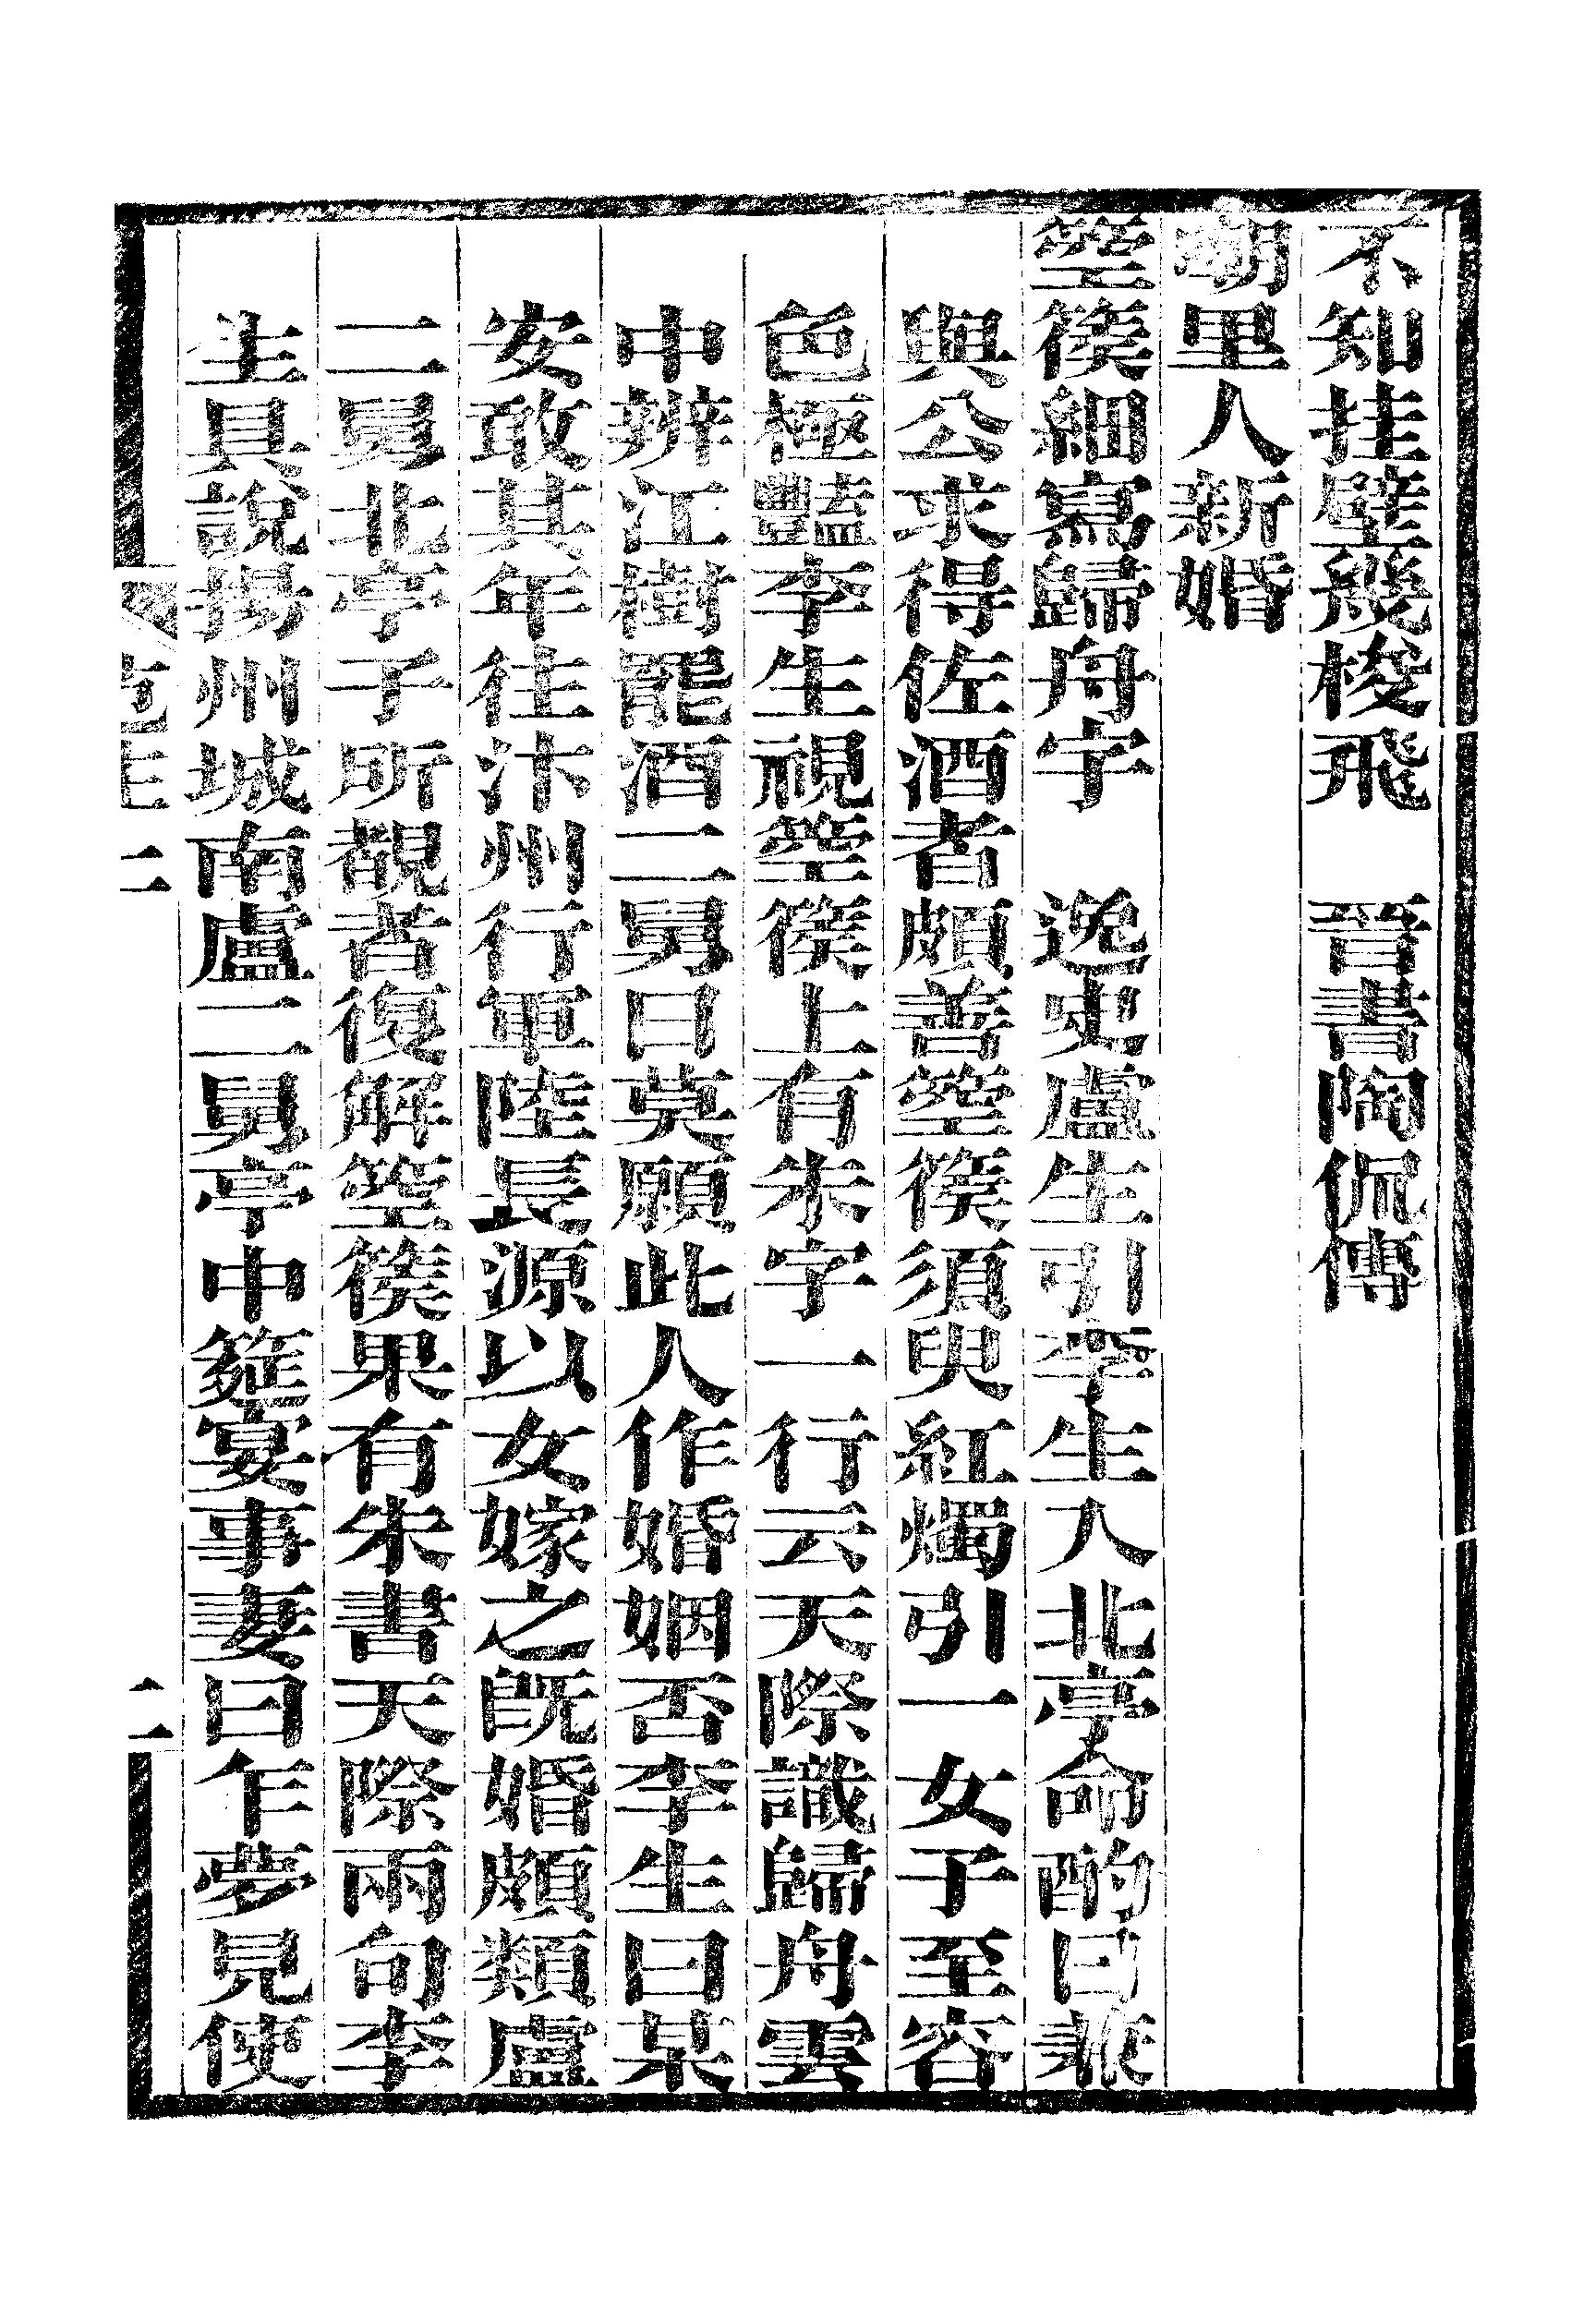 不知挂壁幾梭飛　晉書陶侃傳
嘲里人新婚
箜篌細寫歸舟字　逸史盧生引李生入北亭命酌曰兼
與公求得佐酒者頗善箜篌須臾紅燭引一女子至容
色極豔李生視箜篌上有朱字一行云天際識歸舟雲
中辨江樹罷酒二舅曰莫願此人作婚姻否李生曰某
安敢其年往汴州行軍陸長源以女嫁之旣婚頗類盧
二舅北亭子所覩者復解箜篌果有朱書天際兩句李
生具說揚州城南盧二舅亭中筵宴事妻曰乍夢見使
二
二